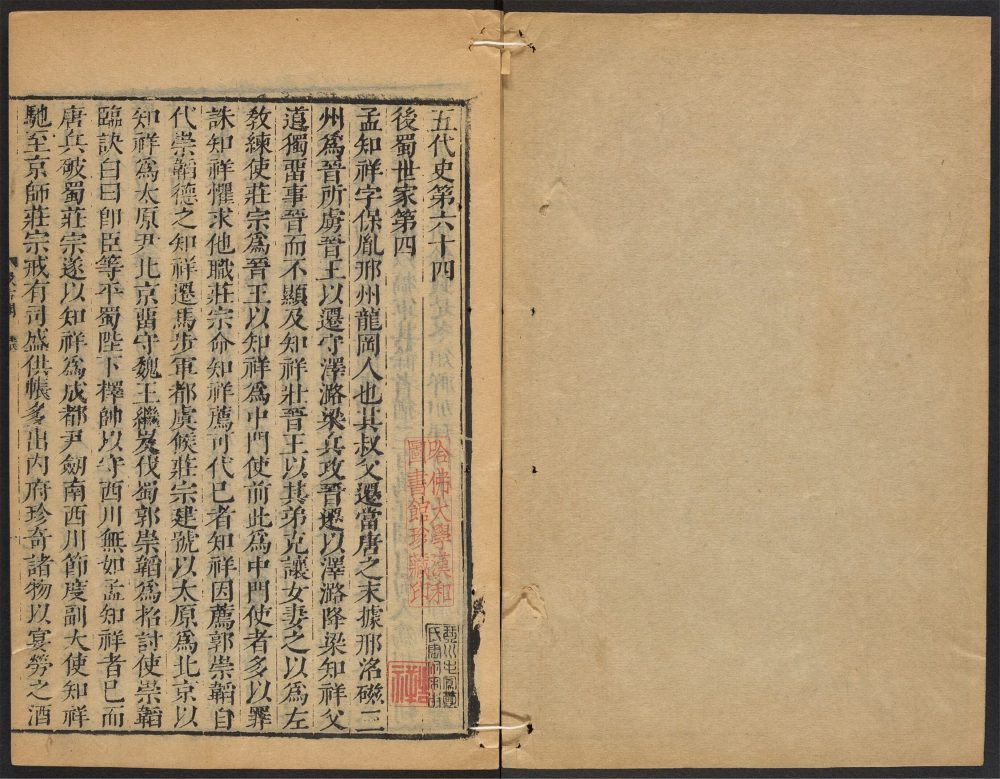 五代史第六十四
後蜀世家第四
孟知祥字保胤邢州龍岡人也其叔父遷當唐之末據邢洺磁三
州爲晉所虜晉王以遷守澤潞梁兵攻晉遷以澤潞降梁知祥父
道獨畱事晉而不顯及知祥壯晉王以其弟克讓女妻之以爲左
敎練使莊宗爲晉王以知祥爲中門使前此爲中門使者多以罪
誅知祥懼求他職莊宗命知祥薦可代己者知祥因薦郭崇韜自
代崇韜德之知祥遷馬步軍都虞候莊宗建號以太原爲北京以
知祥爲太原尹北京畱守魏王繼岌伐蜀郭崇韜爲招討使崇韜
臨訣白曰卽臣等平蜀陛下擇帥以守西川無如孟知祥者已而
唐兵破蜀莊宗遂以知祥爲成都尹劒南西川節度副大使知祥
馳至京師莊宗戒有司盛供帳多出內府珍奇諸物以宴勞之酒
哈佛大學漢和
圖書館珍藏印